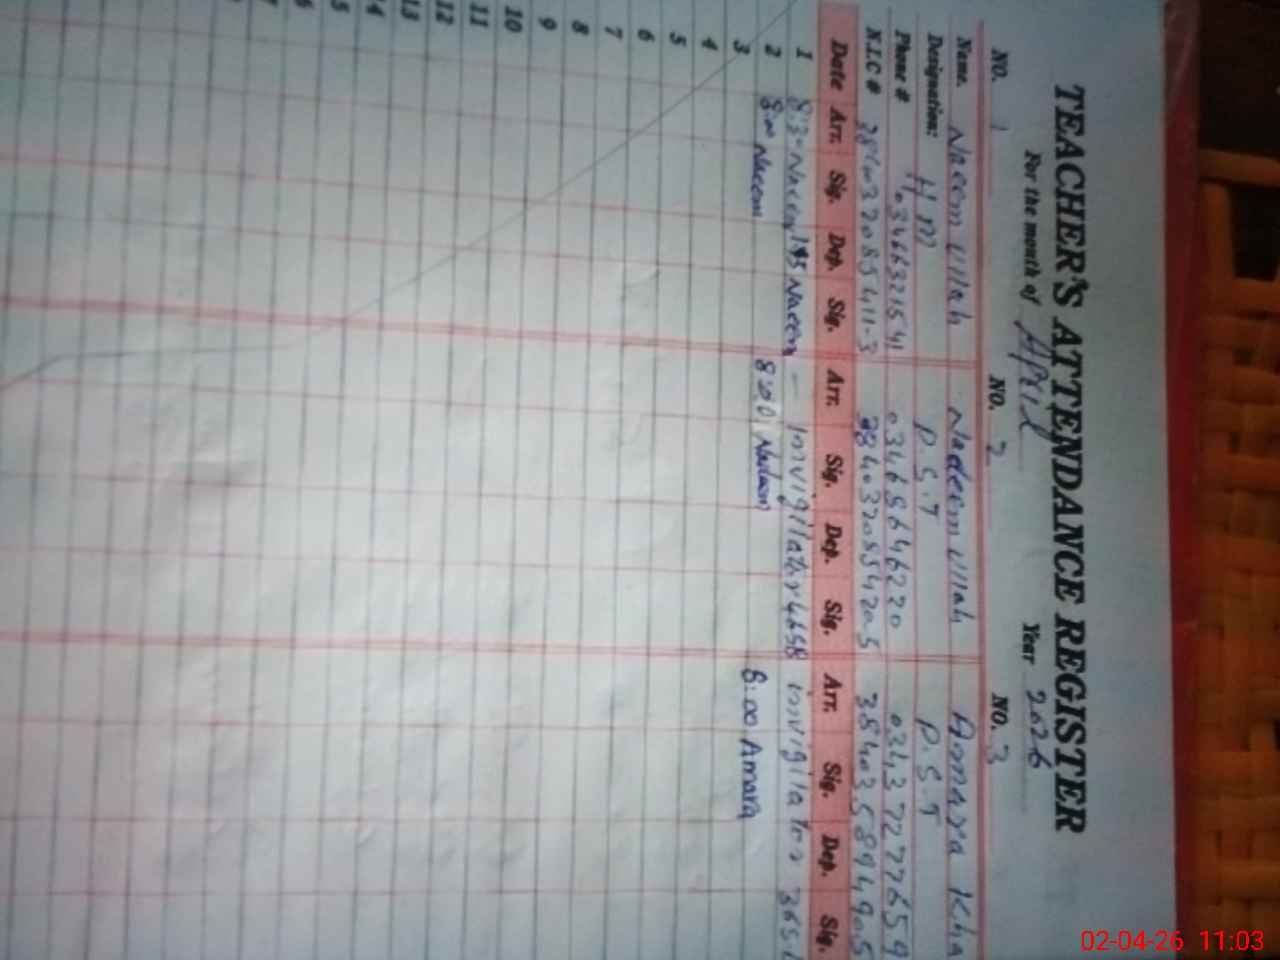 TEACHER'S ATTENDANCE REGISTER
For the month of April Year 2026
NO. 1 NO. 2 NO. 3
Name. Naeem Ullah Nadeem Ullah Ammara Kha
Designation: H M P.S.T P.S.T
Phone # 03466321541 03465646220 03437277659
N.I.C # 384032085411-3 3840320854205 384035894905
Date Arr. Sig. Dep. Sig. Arr. Sig. Dep. Sig. Arr. Sig. Dep. Sig.
1 8:30 Naeem 1:45 Naeem — Invigilator 4658 invigilator 365
2 8:00 Naeem 8:00 Nadeem 8:00 Amara
3
4
5
6
7
8
9
10
11
12
13
14
15
02-04-26 11:03